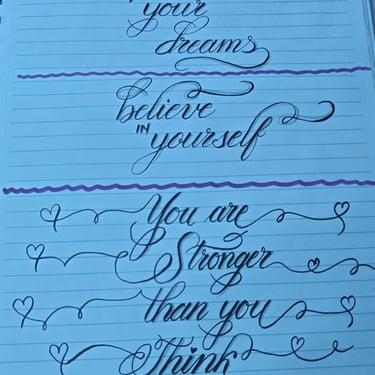 your
dreams
believe
IN
yourself
You are
Stronger
than you
Think